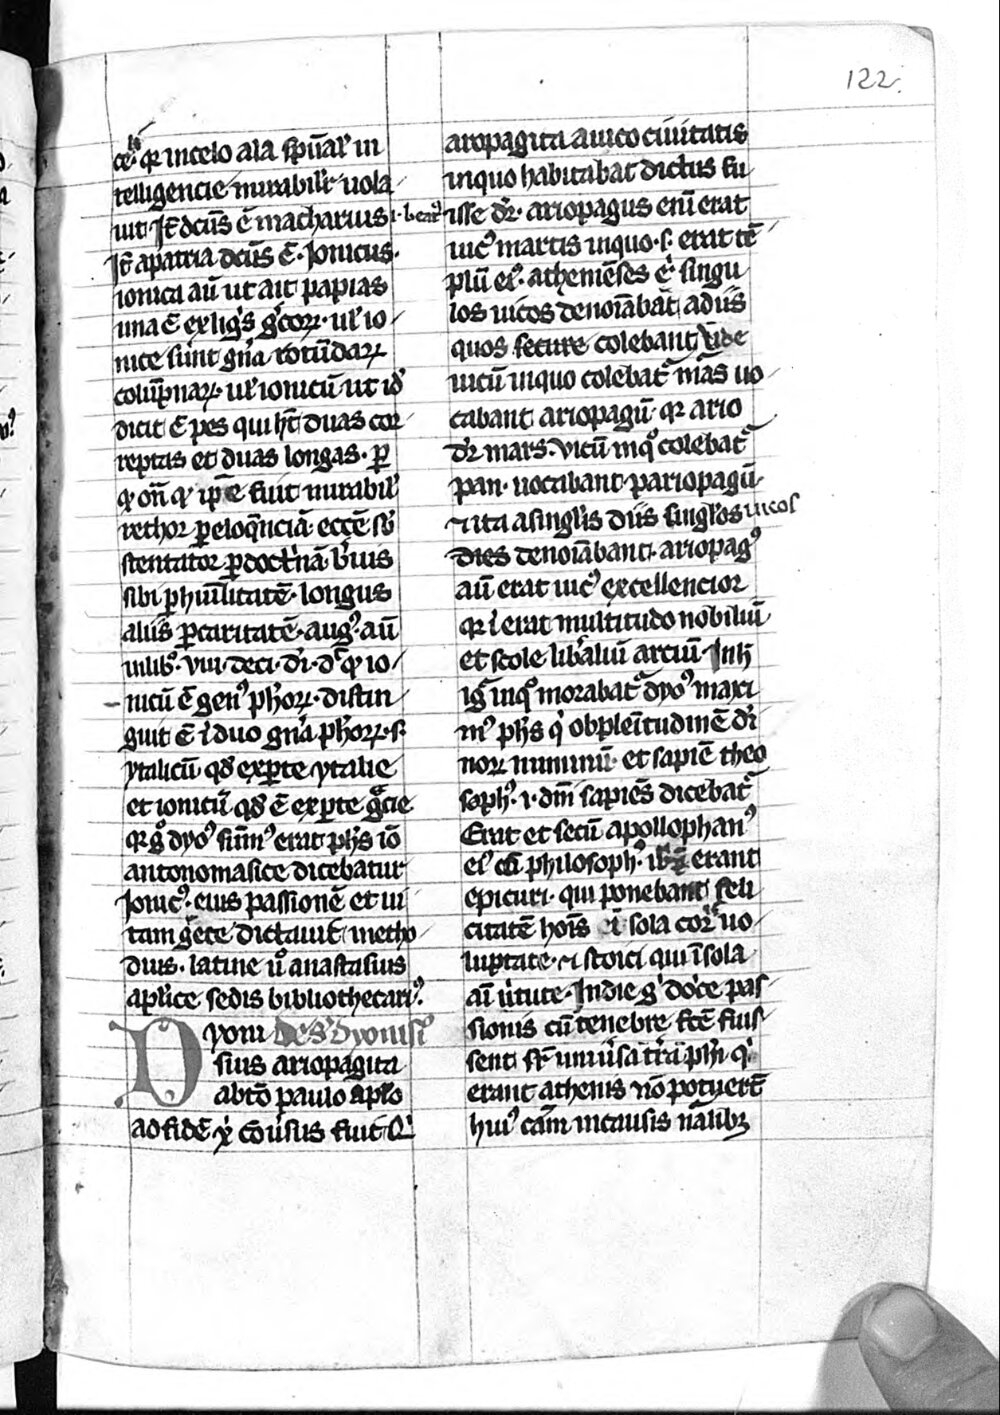 122.
ce. qr in celo ala spũal' in
telligencie mirabilit' uola
uit. Jt̃ dcũs ẽ macharius .i. beat9
Jt̃ a patria dcũs ẽ. Jonicus.
ionica aũ ut ait papias
una ẽ ex ligis grecorꝝ. ul' io
nice sunt gña rotũdarꝝ
colũpnarꝝ. ul' ionicũ ut id'
dicit ẽ pes qui ht̃ duas cor
reptas et duas longas. ꝑ
qd' oñ qd' ip̃e fuit mirabil'
rethor ꝑ eloqñciã. ecc̃e su
stentator ꝑ doct'nã b'uis
sibi ꝑ hũilitatẽ. longus
aliis ꝑ caritatẽ. aug9 aũ
in lib9. viii. de ci. di. d't qd' io
nicũ ẽ gen9 ph'orꝝ. distin
guit ẽ i duo gña ph'orꝝ. s.
ytalicũ qd' ex parte ytalie
et ionicũ qd' ẽ ex parte grecie
qr g° dyo9 sũm9 erat ph's iõ
antonomasice dicebatur
Jonic9. eius passionẽ et ui
tam grece dictauit metho
dius. latine u° anastasius
ap'lice sedis bibliothecari9.
Dyoni De s' dyonisi°
sius ariopagita
a btõ paulo ap'lo
ad fidẽ xi cõu'sus fuit
aropagita a uico ciuitatis
in quo habitabat dictus fu
isse dr̃. ariopagus eni erat
uic9 martis in quo .s. erat tẽ
plũ ei9. athenieñses ẽ singu
los uicos denoiãbãt a diis
quos colebant vñde
uicũ in quo colebat' mãs uo
cabant ariopagũ. qr ario
dr̃ mars. vicũ in q° colebat'
pan. uocabant pariopagũ
⁊ ita a singl'is diis singl'os uicos
denoiãbant. ariopag9
aũ erat uic9 excellencior
qr i erat multitudo nobiliũ
et scole lib'aliũ arciũ. Jn h
ig' in q° morabat' dyo9 maxi
m9 ph's q' ob plenitudinẽ di
norꝝ nuninũ. et sapiẽ theo
soph9. i. dm̃ sapiẽs dicebat'
Erat et secũ apollophan9
ei9 philosoph9. erant
epicuri. qui ponebant feli
citatẽ hoĩs sola cor' uo
luptate. ⁊ stoici qui ĩ sola
aĩ u'tute. Jn die g' dñice pas
sionis cũ tenebre fc̃e fuis
sent sr̃ uniu'sã tr̃ã ph'i q'
erant athenis nõ potuert̃
hui9 cãm in causis nãlibꝫ